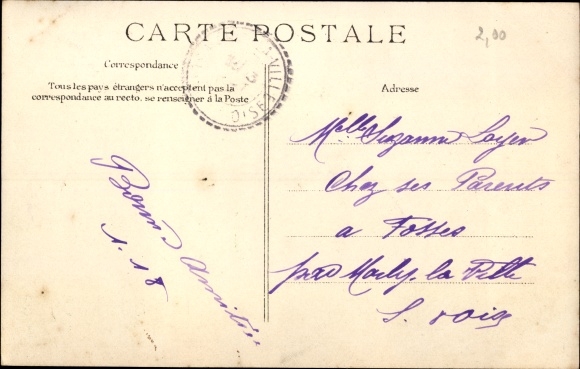 2,00
CARTE POSTALE
Correspondance
Tous les pays étrangers n'acceptent pas la
correspondance au recto. se renseigner à la Poste
Adresse
Bonne Amitié
Melle Suzanne
Chez ses Parents
a Fosses
par Marly la Ville
S. oise